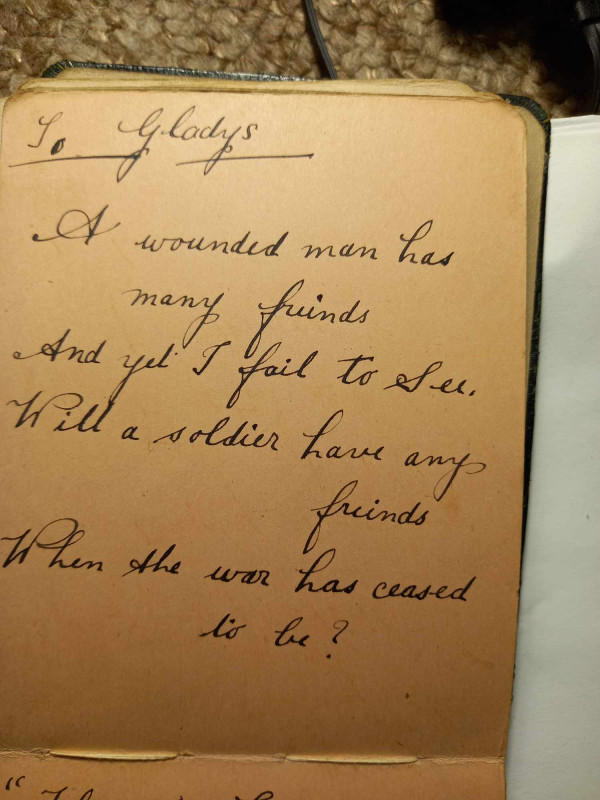 To Gladys
A wounded man has
many friends
And yet I fail to See.
Will a soldier have any
friends
When the war has ceased
to be?
"